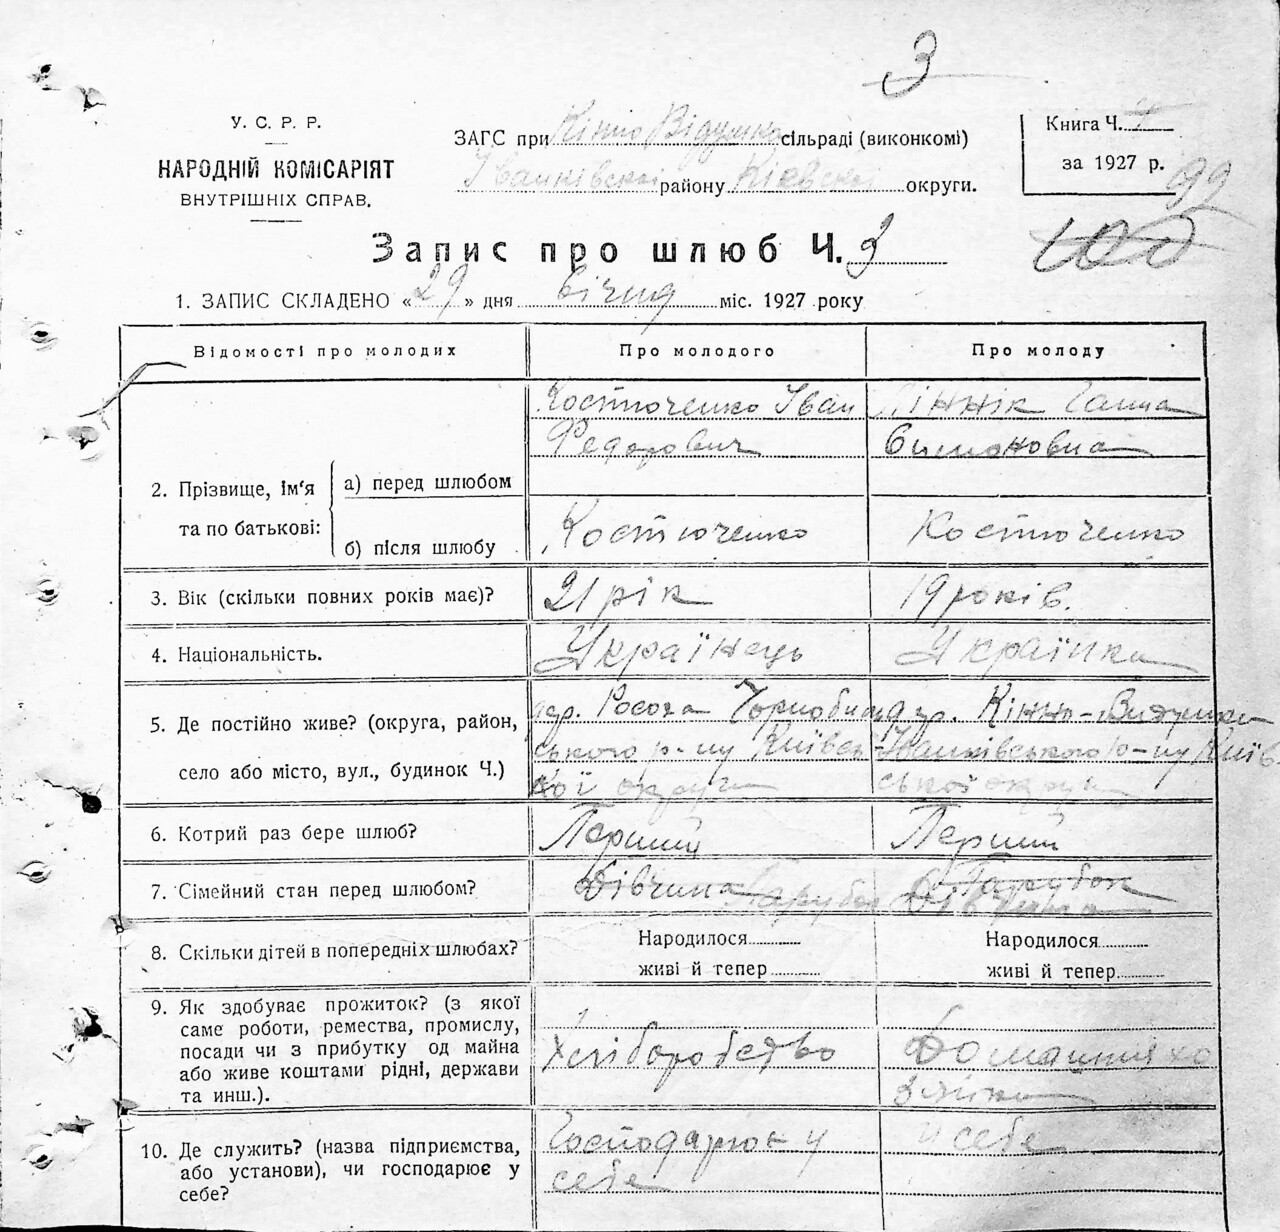 3
У. С. Р. Р.
НАРОДНІЙ КОМІСАРІЯТ
ВНУТРІШНІХ СПРАВ.
ЗАГС при Кінно Відумко сільраді (виконкомі)
Іванківскої району Кіевскої округи.
Книга Ч. 4
за 1927 р.
99
100
Запис про шлюб Ч. 3
1. ЗАПИС СКЛАДЕНО «29» дня Січня міс. 1927 року
Відомості про молодих
Про молодого
Про молоду
2. Прізвище, Ім'я та по батькові:
а) перед шлюбом
Костюченко Іван
Федорович
Ліннік Ганна
Симоновна
б) після шлюбу
Костюченко
Костюченко
3. Вік (скільки повних років має)?
21 рік
19 років.
4. Національність.
Українець
Українка
5. Де постійно живе? (округа, район,
село або місто, вул., будинок Ч.)
дер. Росоха Чорнобил
ського р-ну Київсь-
кої округи
дер. Кінно-Видумка
Іванківського р-ну Київ
ської округи
6. Котрий раз бере шлюб?
Перший
Перший
7. Сімейний стан перед шлюбом?
Дівчина Парубок
Парубок
Дівчина
8. Скільки дітей в попередніх шлюбах?
Народилося
живі й тепер
Народилося
живі й тепер
9. Як здобуває прожиток? (з якої
саме роботи, ремества, промислу,
посади чи з прибутку од майна
або живе коштами рідні, держави
та инш.).
Хліборобство
Домашння хо
зяйка
10. Де служить? (назва підприємства,
або установи), чи господарює у
себе?
Господарює у
себе
У себе